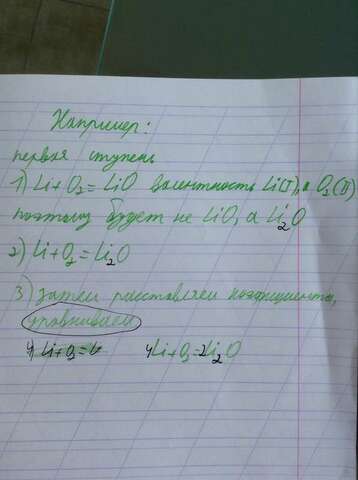 Например:
первая ступень
1) Li + O₂ = LiO валентность Li(I), а O₂(II)
поэтому будет не LiO, а Li₂O
2) Li + O₂ = Li₂O
3) затем расставляем коэфициенты,
уравниваем
4) Li + O₂ = L 4Li + O₂ = 2Li₂O